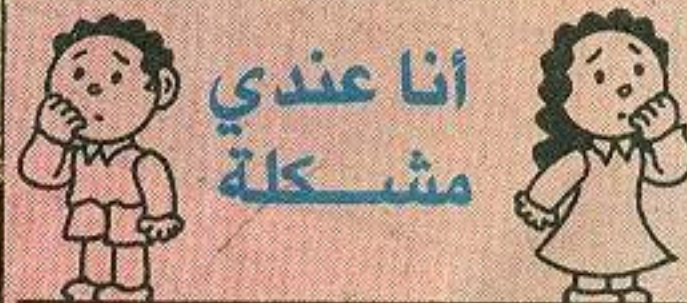 أنا عندي
مشـــكلة